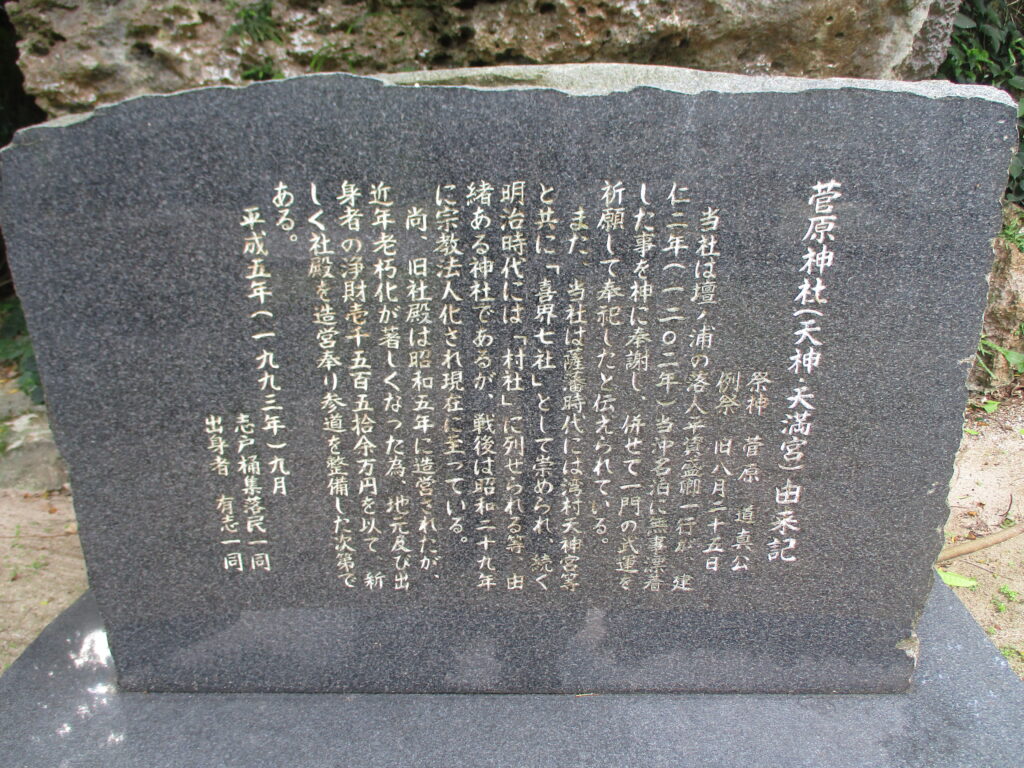 菅原神社(天神・天満宮)由来記
祭神 菅原 道真公
例祭 旧八月二十五日
当社は壇ノ浦の落人平資盛卿一行が 建
仁二年(一二〇二年)当沖名泊に無事漂着
した事を神に奉謝し、併せて一門の武運を
祈願して奉祀したと伝えられている。
また、当社は薩藩時代には湾村天神宮等
と共に「喜界七社」として崇められ、続く
明治時代には「村社」に列せられる等 由
緒ある神社であるが、戦後は昭和二十九年
に宗教法人化され現在に至っている。
尚、旧社殿は昭和五年に造営されたが、
近年老朽化が著しくなった為、地元及び出
身者の浄財壱千五百五拾余万円を以て 新
しく社殿を造営奉り参道を整備した次第で
ある。
平成五年(一九九三年)九月
志戸桶集落民一同
出身者 有志一同